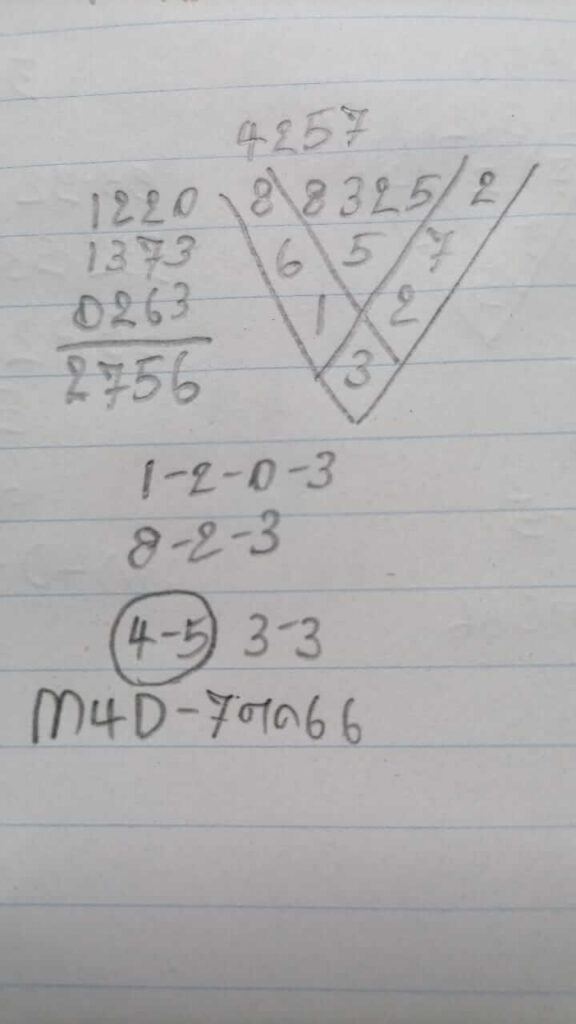 4257
1220 8 8325 2
1373 6 5 7
0263 1 2
2756 3
1-2-0-3
8-2-3
4-5 3-3
M4D-7 66